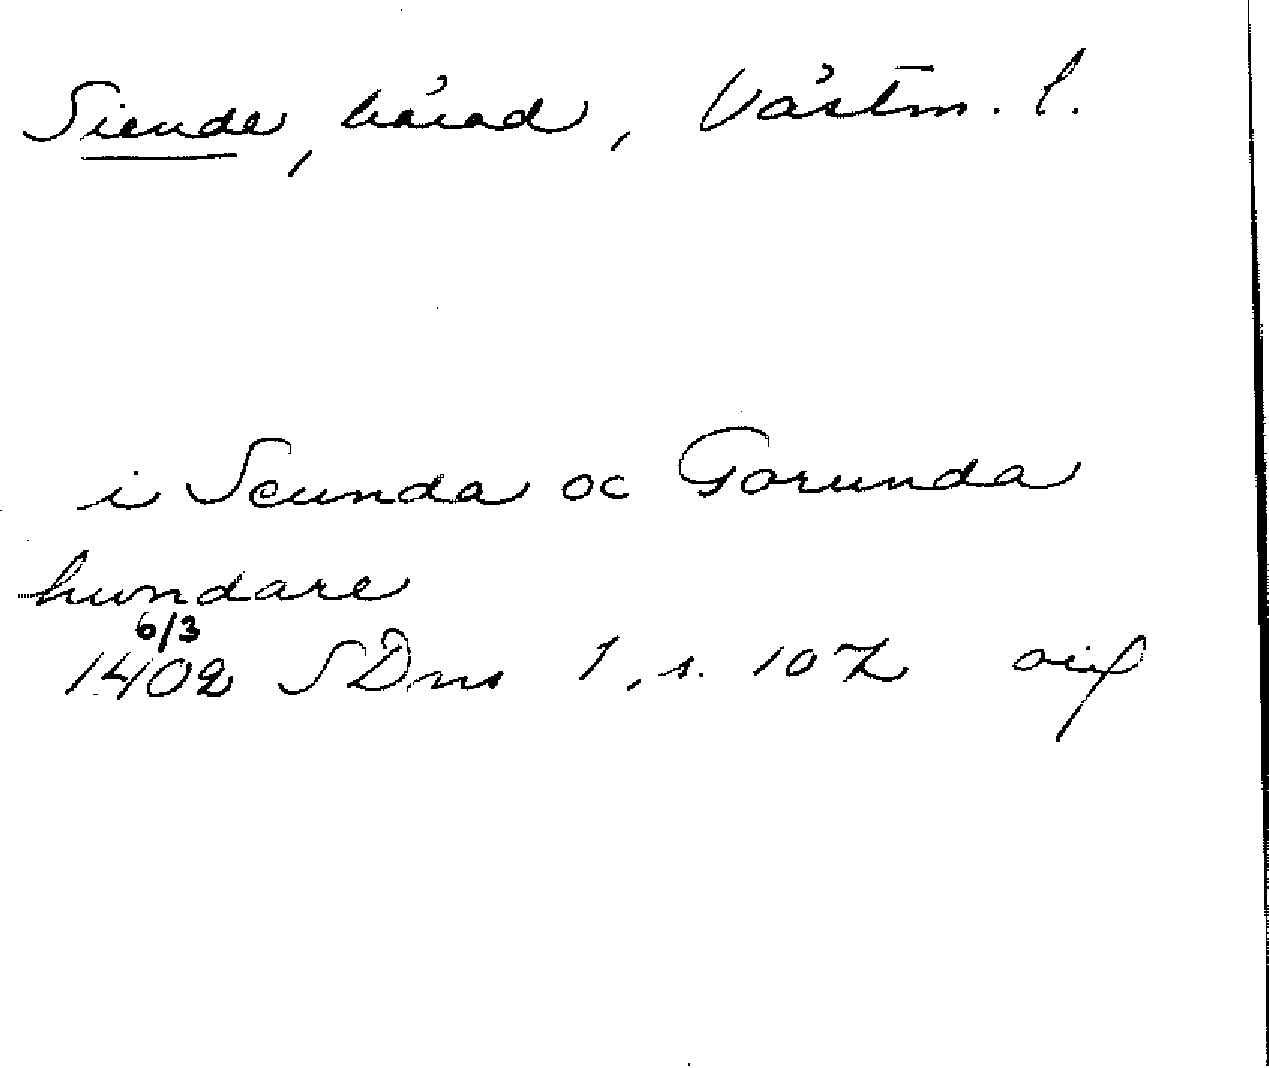 Siende, härad, Västm. l.
i Seunda oc Gorunda
hundare
6/3
1402 SDns 1, s. 107 orig